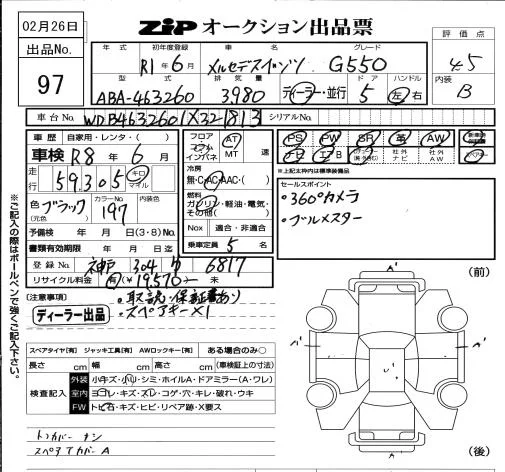 02月26日
ZIP オークション出品票
評価点
出品No.
年式 初年度登録 車名 グレード
4.5
97
R1年6月 メルセデスベンツ G550
型式 排気量 ドア ハンドル 内装
ABA-463260 3,980 ディーラー・並行 5 左・右 B
車台No. WDB4632601X321813 シリアルNo.
車歴 自家用・レンタ・( )
フロア コラム インパネ AT MT 速
PS PW SR 革 AW
車検 R8年6月
ナビ エアB 社外ナビ 社外AW
走行 59,305 キロ マイル
冷房 無・C・AC・AAC・( )
※上記太枠内は標準装備品
色 ブラック (元色) カラーNo. 197 内装色
燃料 ガソリン・軽油・電気・その他( )
セールスポイント
・360°カメラ
予備検 年 月 日(3・8)No.
Nox 適合・非適合
・ブルメスター
書類有効期限 年 月 日迄
乗車定員 5 名
登録No. 神戸 304 6817
リサイクル料金 有(¥19,570-) 未
(前)
(注意事項) ・取説・保証書あり
ディーラー出品 ・スペアキー×1
※ご記入の際はボールペンで強くご記入下さい。
スペアタイヤ[有] ジャッキ工具[有] AWロックキー[有] ある場合のみ○
長さ cm 幅 cm 高さ cm (車検証上の寸法)
検査記入
外装 小キズ・小凹・シミ・ホイルA・ドアミラー(A・ワレ)
室内 ヨゴレ・キズ・スレ・コゲ・穴・キレ・破れ・ウキ
FW トビ石・キズ・ヒビ・リペア跡・X要ス
トノカバーナシ
スペアタカバーA
(後)